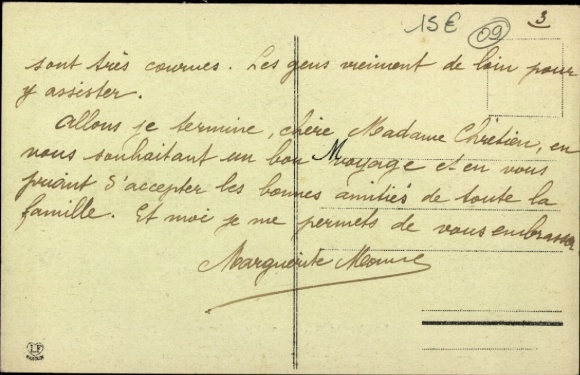 15€ 09 3
sont très courues. Les gens vreiment de loin pour
y assister.
Allons je termine, chère Madame Chrétien, en
vous souhaitant un bon voyage et en vous
priant d'accepter les bonnes amitiés de toute la
famille. Et moi je me permets de vous embrasser
Marguerite